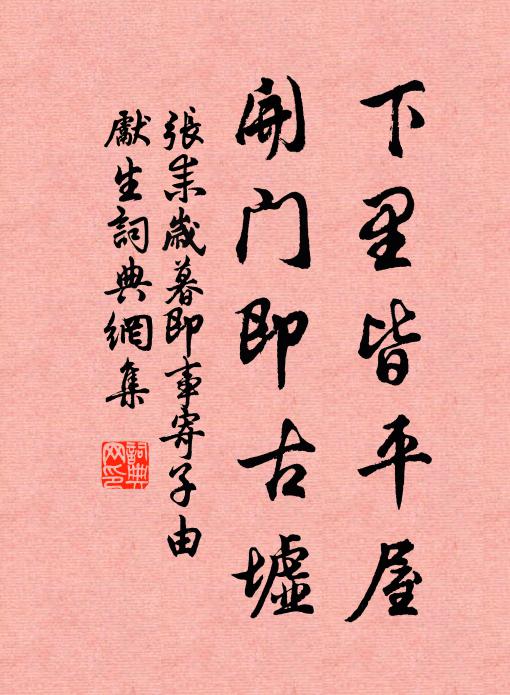 下里皆平屋
開门即古墟
張耒歲暮即事寄子由
獻生詞典網集
詞典网印